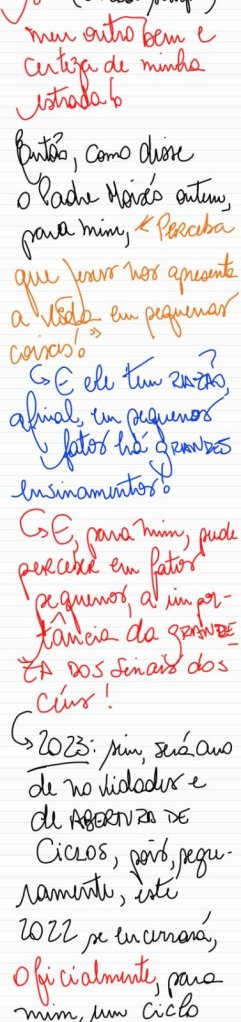 meu outro bem e
certeza de minha
estrada!
Então, como disse
o Padre Moisés ontem,
para mim, "Perceba
que Jesus nos apresenta
a vida em pequenas
coisas!"
E ele tem RAZÃO,
afinal, em pequenos
fatos há GRANDES
ensinamentos!
E, para mim, pude
perceber em fatos
pequenos, a impor-
tância da GRANDE-
ZA DOS Sinais dos
Céus!
2023: sim, será ano
de novidades e
de ABERTURA DE
CICLOS, pois, segu-
ramente, este
2022 se encerrará,
oficialmente, para
mim, um ciclo